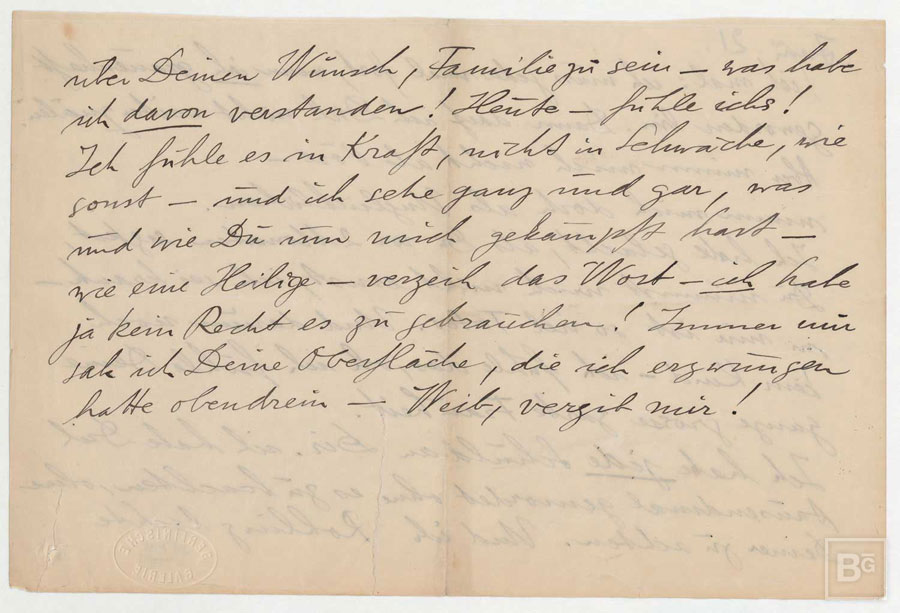 über Deinen Wunsch, Familie zu sein – was habe
ich davon verstanden! Heute – fühle ichs!
Ich fühle es in Kraft, nicht in Schwäche, wie
sonst – und ich sehe ganz und gar, was
und wie Du um mich gekämpft hast –
wie eine Heilige – verzeih das Wort – ich habe
ja kein Recht es zu gebrauchen! Immer nur
sah ich Deine Oberfläche, die ich erzwungen
hatte obendrein – Weib, vergib mir!
BERLINISCHE
GALERIE
BG